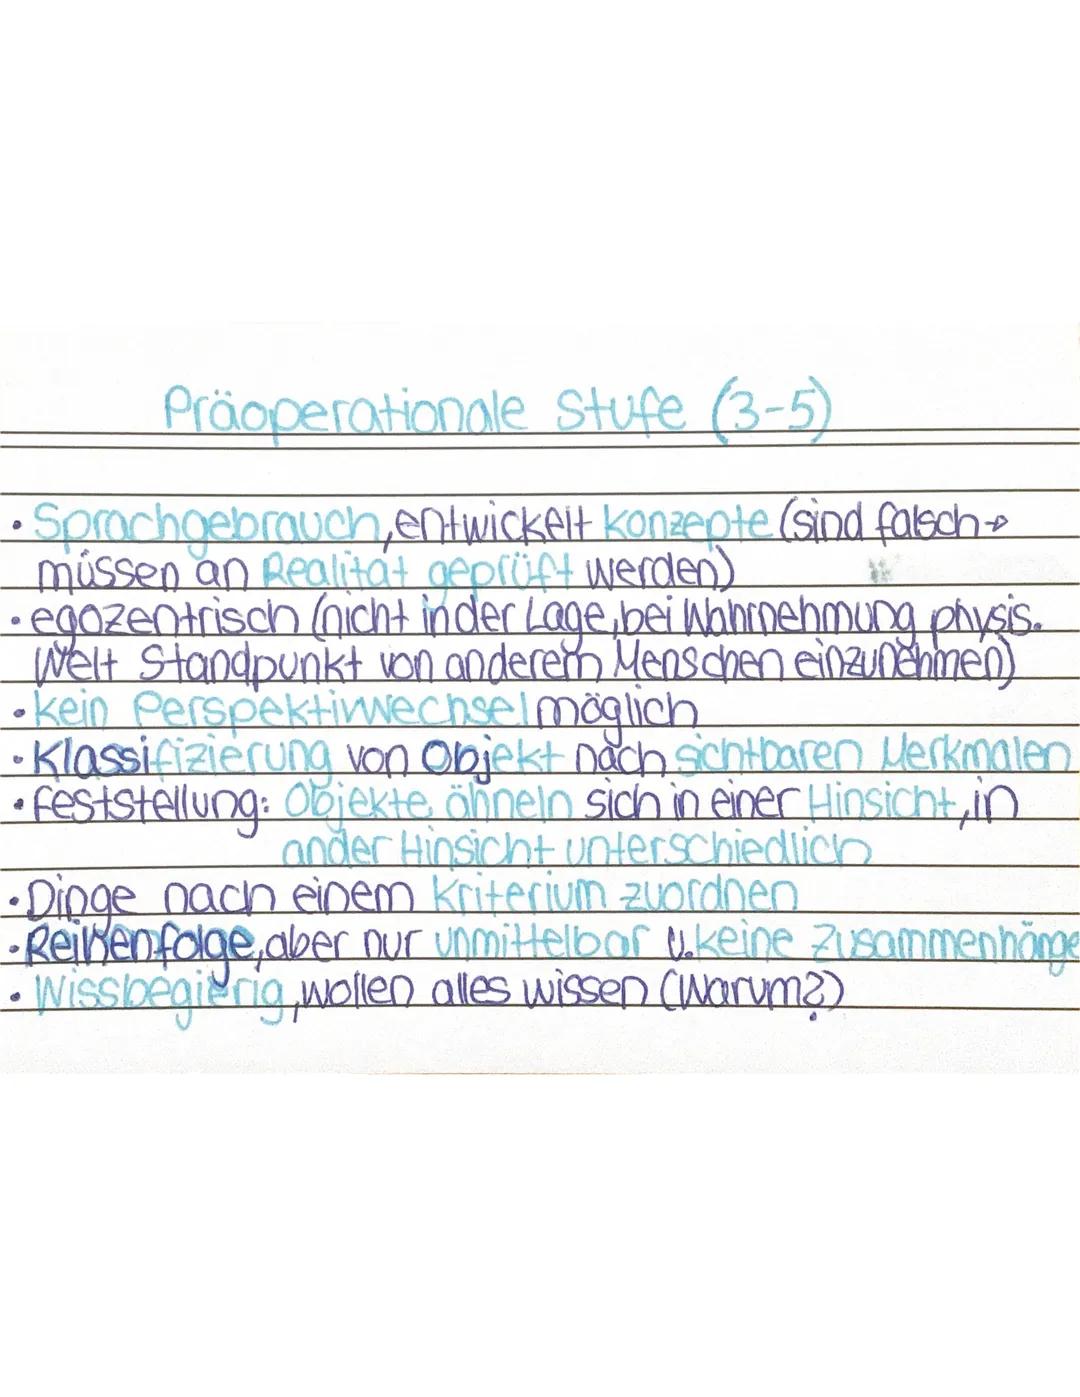 Präoperationale Stufe (3-5)
• Sprachgebrauch, entwickelt Konzepte (sind falsch →
müssen an Realität geprüft werden)
• egozentrisch (nicht in der Lage, bei Wahrnehmung physis.
Welt Standpunkt von anderem Menschen einzunehmen)
• kein Perspektivwechsel möglich
• Klassifizierung von Objekt nach sichtbaren Merkmalen
• Feststellung: Objekte ähneln sich in einer Hinsicht, in
ander Hinsicht unterschiedlich
• Dinge nach einem Kriterium zuordnen
• Reihenfolge, aber nur unmittelbar u. keine Zusammenhänge
• Wissbegierig, wollen alles wissen (Warum?)